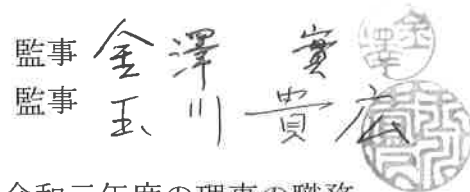 監事 金澤 實
監事 玉川 貴広
令和元年度の理事の職務